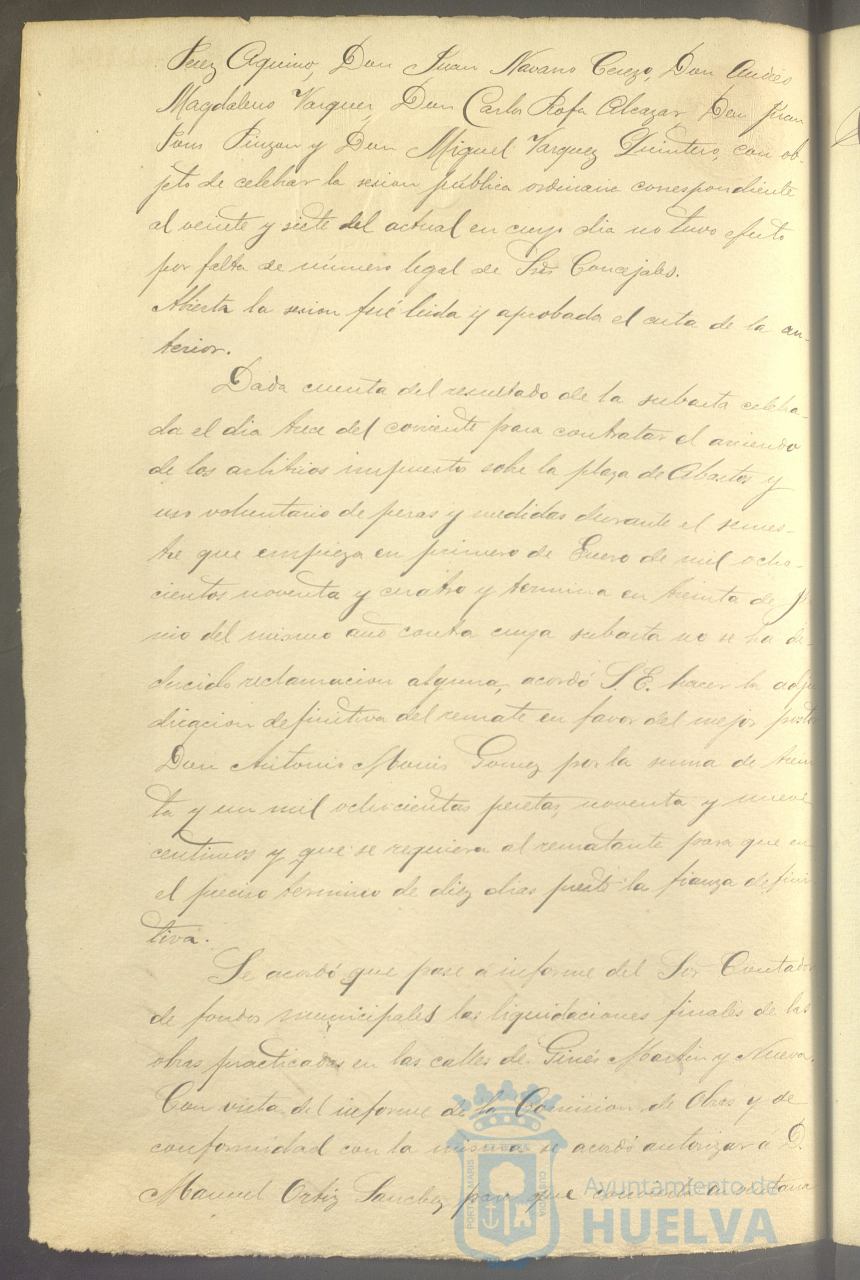 Perez Aquino, Don Juan Navarro Cerezo, Don Andrés
Magdaleno Vazquez, Don Carlos Rofa Alcazar, Don Juan
Pons Pinzon y Don Miguel Vazquez Quintero, con ob-
jeto de celebrar la sesion pública ordinaria correspondiente
al veinte y siete del actual en cuyo dia no tuvo efecto
por falta de número legal de Sres Concejales.
Abierta la sesion fué leida y aprobada el acta de la an-
terior.
Dada cuenta del resultado de la subasta celebra-
da el dia trece del corriente para contratar el arriendo
de los arbitrios impuesto sobre la plaza de Abastos y
uso voluntario de pesas y medidas durante el semes-
tre que empieza en primero de Enero de mil ocho-
cientos noventa y cuatro y termina en treinta de Ju
nio del mismo año contra cuya subasta no se ha de-
ducido reclamacion alguna, acordó S.E. hacer la adju
dicacion definitiva del remate en favor del mejor postor
Don Antonio Gomez por la suma de trein
ta y un mil ochocientas pesetas, noventa y nueve
centimos y que se requiera al rematante para que en
el preciso termino de diez dias preste la fianza defini
tiva.
Se acordó que pase a informe del Sor Contador
de fondos municipales las liquidaciones finales de las
obras practicadas en las calles de Ginés Martin y Nueva.
Con vista del informe de la Comision de Obras y de
conformidad con la misma se acordó autorizar á D.
Manuel Ortiz Sanchez para que
Ayuntamiento de
HUELVA